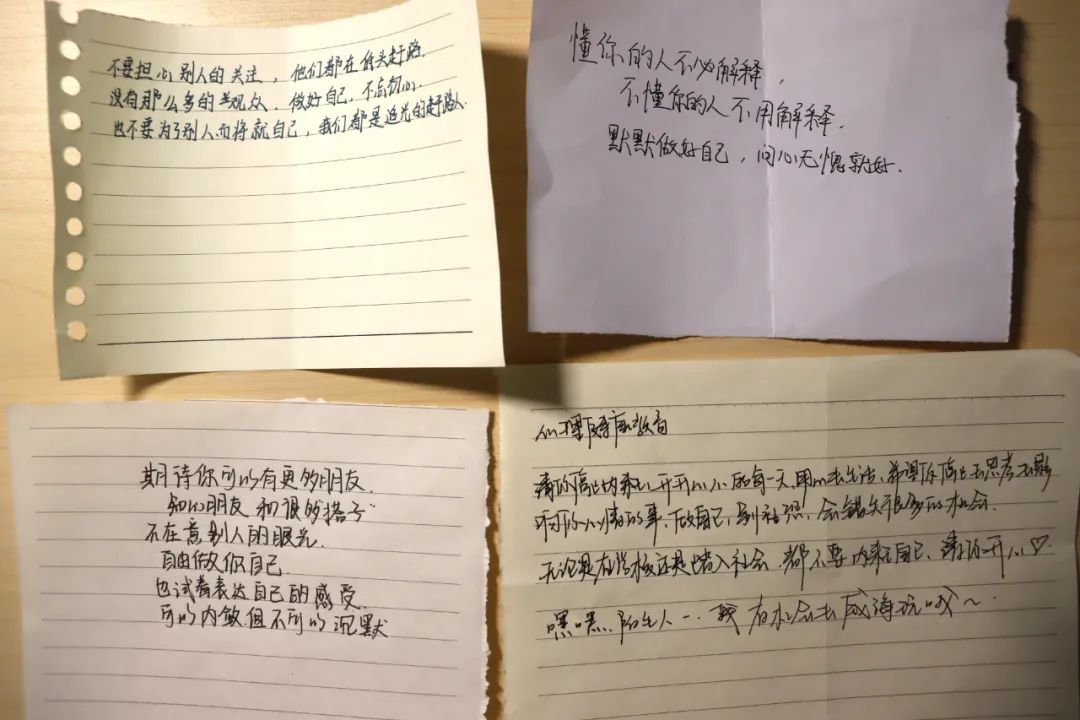 不要担心别人的关注，他们都在低头赶路.
没有那么多的观众. 做好自己，不忘初心.
也不要为了别人而将就自己，我们都是追光的赶路人.
懂你的人不必解释，
不懂你的人不用解释.
默默做好自己，问心无愧就好.
期待你可以有更多朋友.
知心朋友 和很多搭子
不在意别人的眼光.
自由做你自己
也试着表达自己的感受
可以内敛.但不可以沉默
心理健康教育
请你停止内耗、开开心心的每一天.用心去生活、希望你停止去思考去影
响你心情的事、做自己、别社恐、会错失很多的机会.
无论是在学校还是踏入社会.都不要内耗自己、请你开心♡.
嘿嘿.陌生人一. 有机会去威海玩哦～.